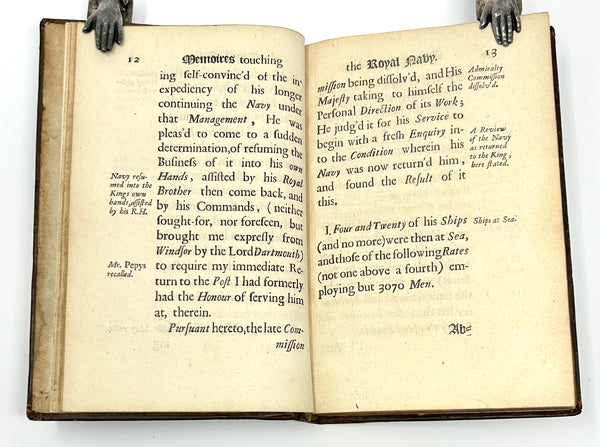 12 Memoires touching
ing ſelf-convinc'd of the in-
expediency of his longer
continuing the Navy under
that Management, He was
pleas'd to come to a ſudden
determination, of reſuming the
Buſineſs of it into his own
Hands, aſſiſted by his Royal
Brother then come back, and
by his Commands, (neither
ſought-for, nor foreſeen, but
brought me expreſly from
Windſor by the Lord Dartmouth)
to require my immediate Re-
turn to the Poſt I had formerly
had the Honour of ſerving him
at, therein.
Purſuant hereto, the late Com-
miſſion
Navy reſu-
med into the
Kings own
hands, aſſiſted
by his R.H.
Mr. Pepys
recalled.
the Royal Navy. 13
miſſion being diſſolv'd, and His
Majeſty taking to himſelf the
Perſonal Direction of its Work;
He judg'd it for his Service to
begin with a freſh Enquiry in-
to the Condition wherein his
Navy was now return'd him,
and found the Reſult of it
this.
I. Four and Twenty of his Ships
(and no more) were then at Sea,
and thoſe of the following Rates
(not one above a fourth) em-
ploying but 3070 Men.
Ab-
Admiralty
Commiſſion
diſſolv'd.
A Review
of the Navy
as returned
to the King,
here ſtated.
Ships at Sea.